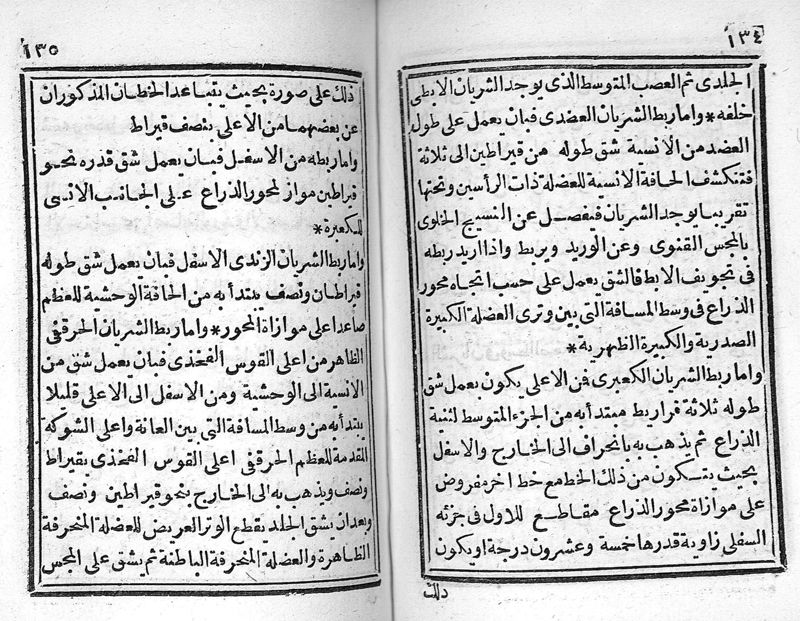 ١٣٤
الجلدى ثم العصب المتوسط الذى يوجد الشريان الابطى
خلفه * واما ربط الشريان العضدى فبان يعمل على طول
العضد من الانسية شق طوله من قيراطين الى ثلاثة
فتنكشف الحافة الانسية للعضلة ذات الرأسين وتحتها
تقريبا يوجد الشريان فيفصل عن النسيج الخلوى
بالمجس القنوى وعن الوريد ويربط واذا اريد ربطه
فى تجويف الابط فالشق يعمل على حسب اتجاه محور
الذراع فى وسط المسافة التى بين وترى العضلة الكبيرة
الصدرية والكبيرة الظهرية *
واما ربط الشريان الكعبرى فن الاعلى يكون بعمل شق
طوله ثلاثة قراريط مبتدأ به من الجزء المتوسط لثنية
الذراع ثم يذهب به بانحراف الى الخارج والاسفل
بحيث يتكون من ذلك الخط مع خط اخر مفروض
على موازاة محور الذراع مقاطع للاول فى جزئه
السفلى زاوية قدرها خمسة وعشرون درجة او يكون
ذلك
١٣٥
ذلك على صورة بحيث يتباعد الخطان المذكوران
عن بعضهما من الاعلى بنصف قيراط
واما ربطه من الاسفل فبان يعمل شق قدره نحو
قيراطين مواز لمحور الذراع على الجانب الانسى
للكعبرة *
واما ربط الشريان الزندى الاسفل فبان يعمل شق طوله
قيراطان ونصف يبتدأ به من الحافة الوحشية للعظم
صاعدا على موازاة المحور * واما ربط الشريان الحرقفى
الظاهر من اعلى القوس الفخذى فبان يعمل شق من
الانسية الى الوحشية ومن الاسفل الى الاعلى قليلا
يبتدأ به من وسط المسافة التى بين العانة واعلى الشوكة
المقدمة للعظم الحرقفى اعلى القوس الفخذى بقيراط
ونصف ويذهب به الى الخارج بنحو قيراطين ونصف
وبعد ان يشق الجلد يقطع الوتر العريض للعضلة المنحرفة
الظاهرة والعضلة المنحرفة الباطنة ثم يشق على المجس